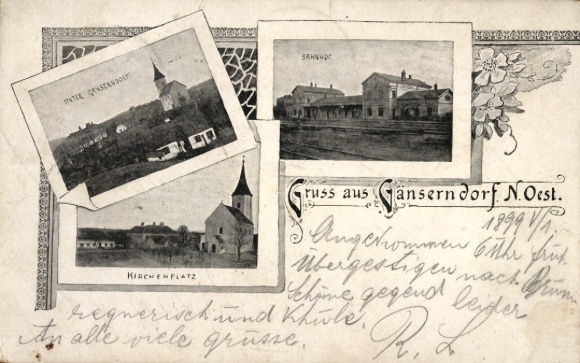 UNTER GÄNSERNDORF
BAHNHOF
Gruss aus Gänserndorf N. Oest.
KIRCHENPLATZ
1899 V/1.
Angekommen 6 Uhr früh
Übergestigen nach Brünn
Schöne gegend leider
regnerisch und Khüle.
An alle viele grüsse.
R. L